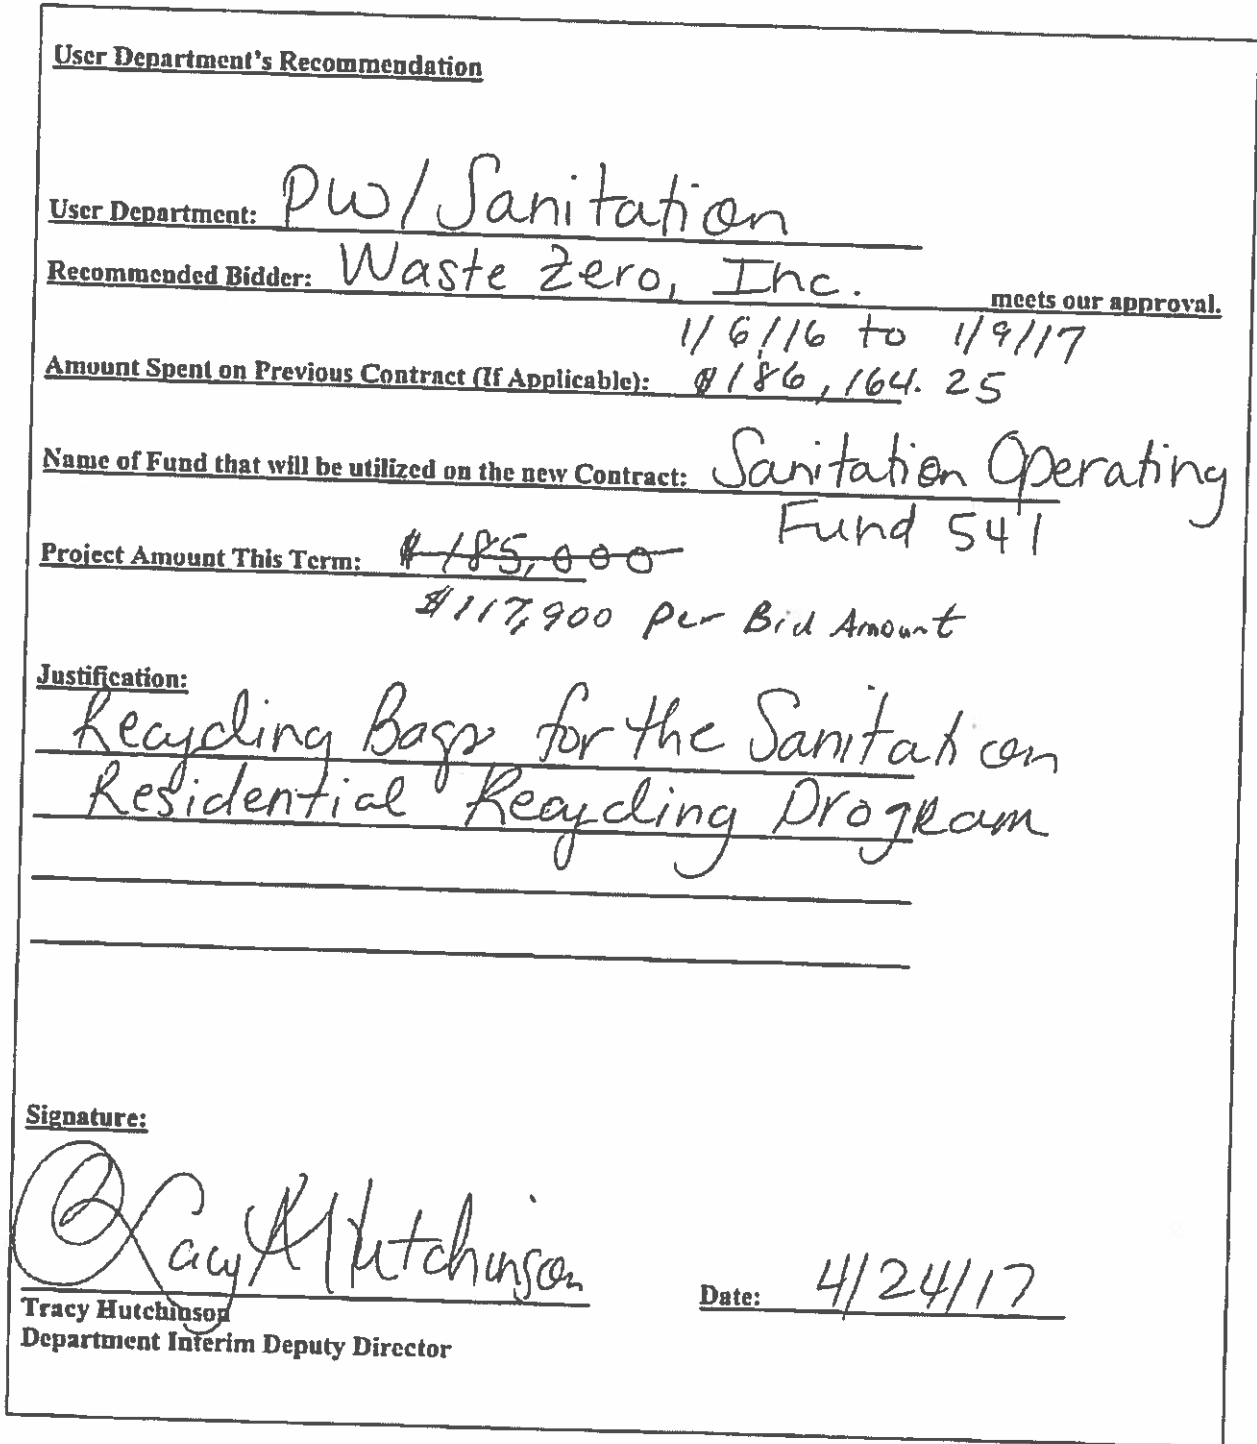 User Department's Recommendation
User Department: PW/Sanitation
Recommended Bidder: Waste Zero, Inc. meets our approval.
1/6/16 to 1/9/17
Amount Spent on Previous Contract (If Applicable): $186,164.25
Name of Fund that will be utilized on the new Contract: Sanitation Operating
Fund 541
Project Amount This Term: $185,000
$117,900 per Bid Amount
Justification:
Recycling Bags for the Sanitation
Residential Recycling Program
Signature:
Tracy Hutchinson
Date: 4/24/17
Tracy Hutchinson
Department Interim Deputy Director